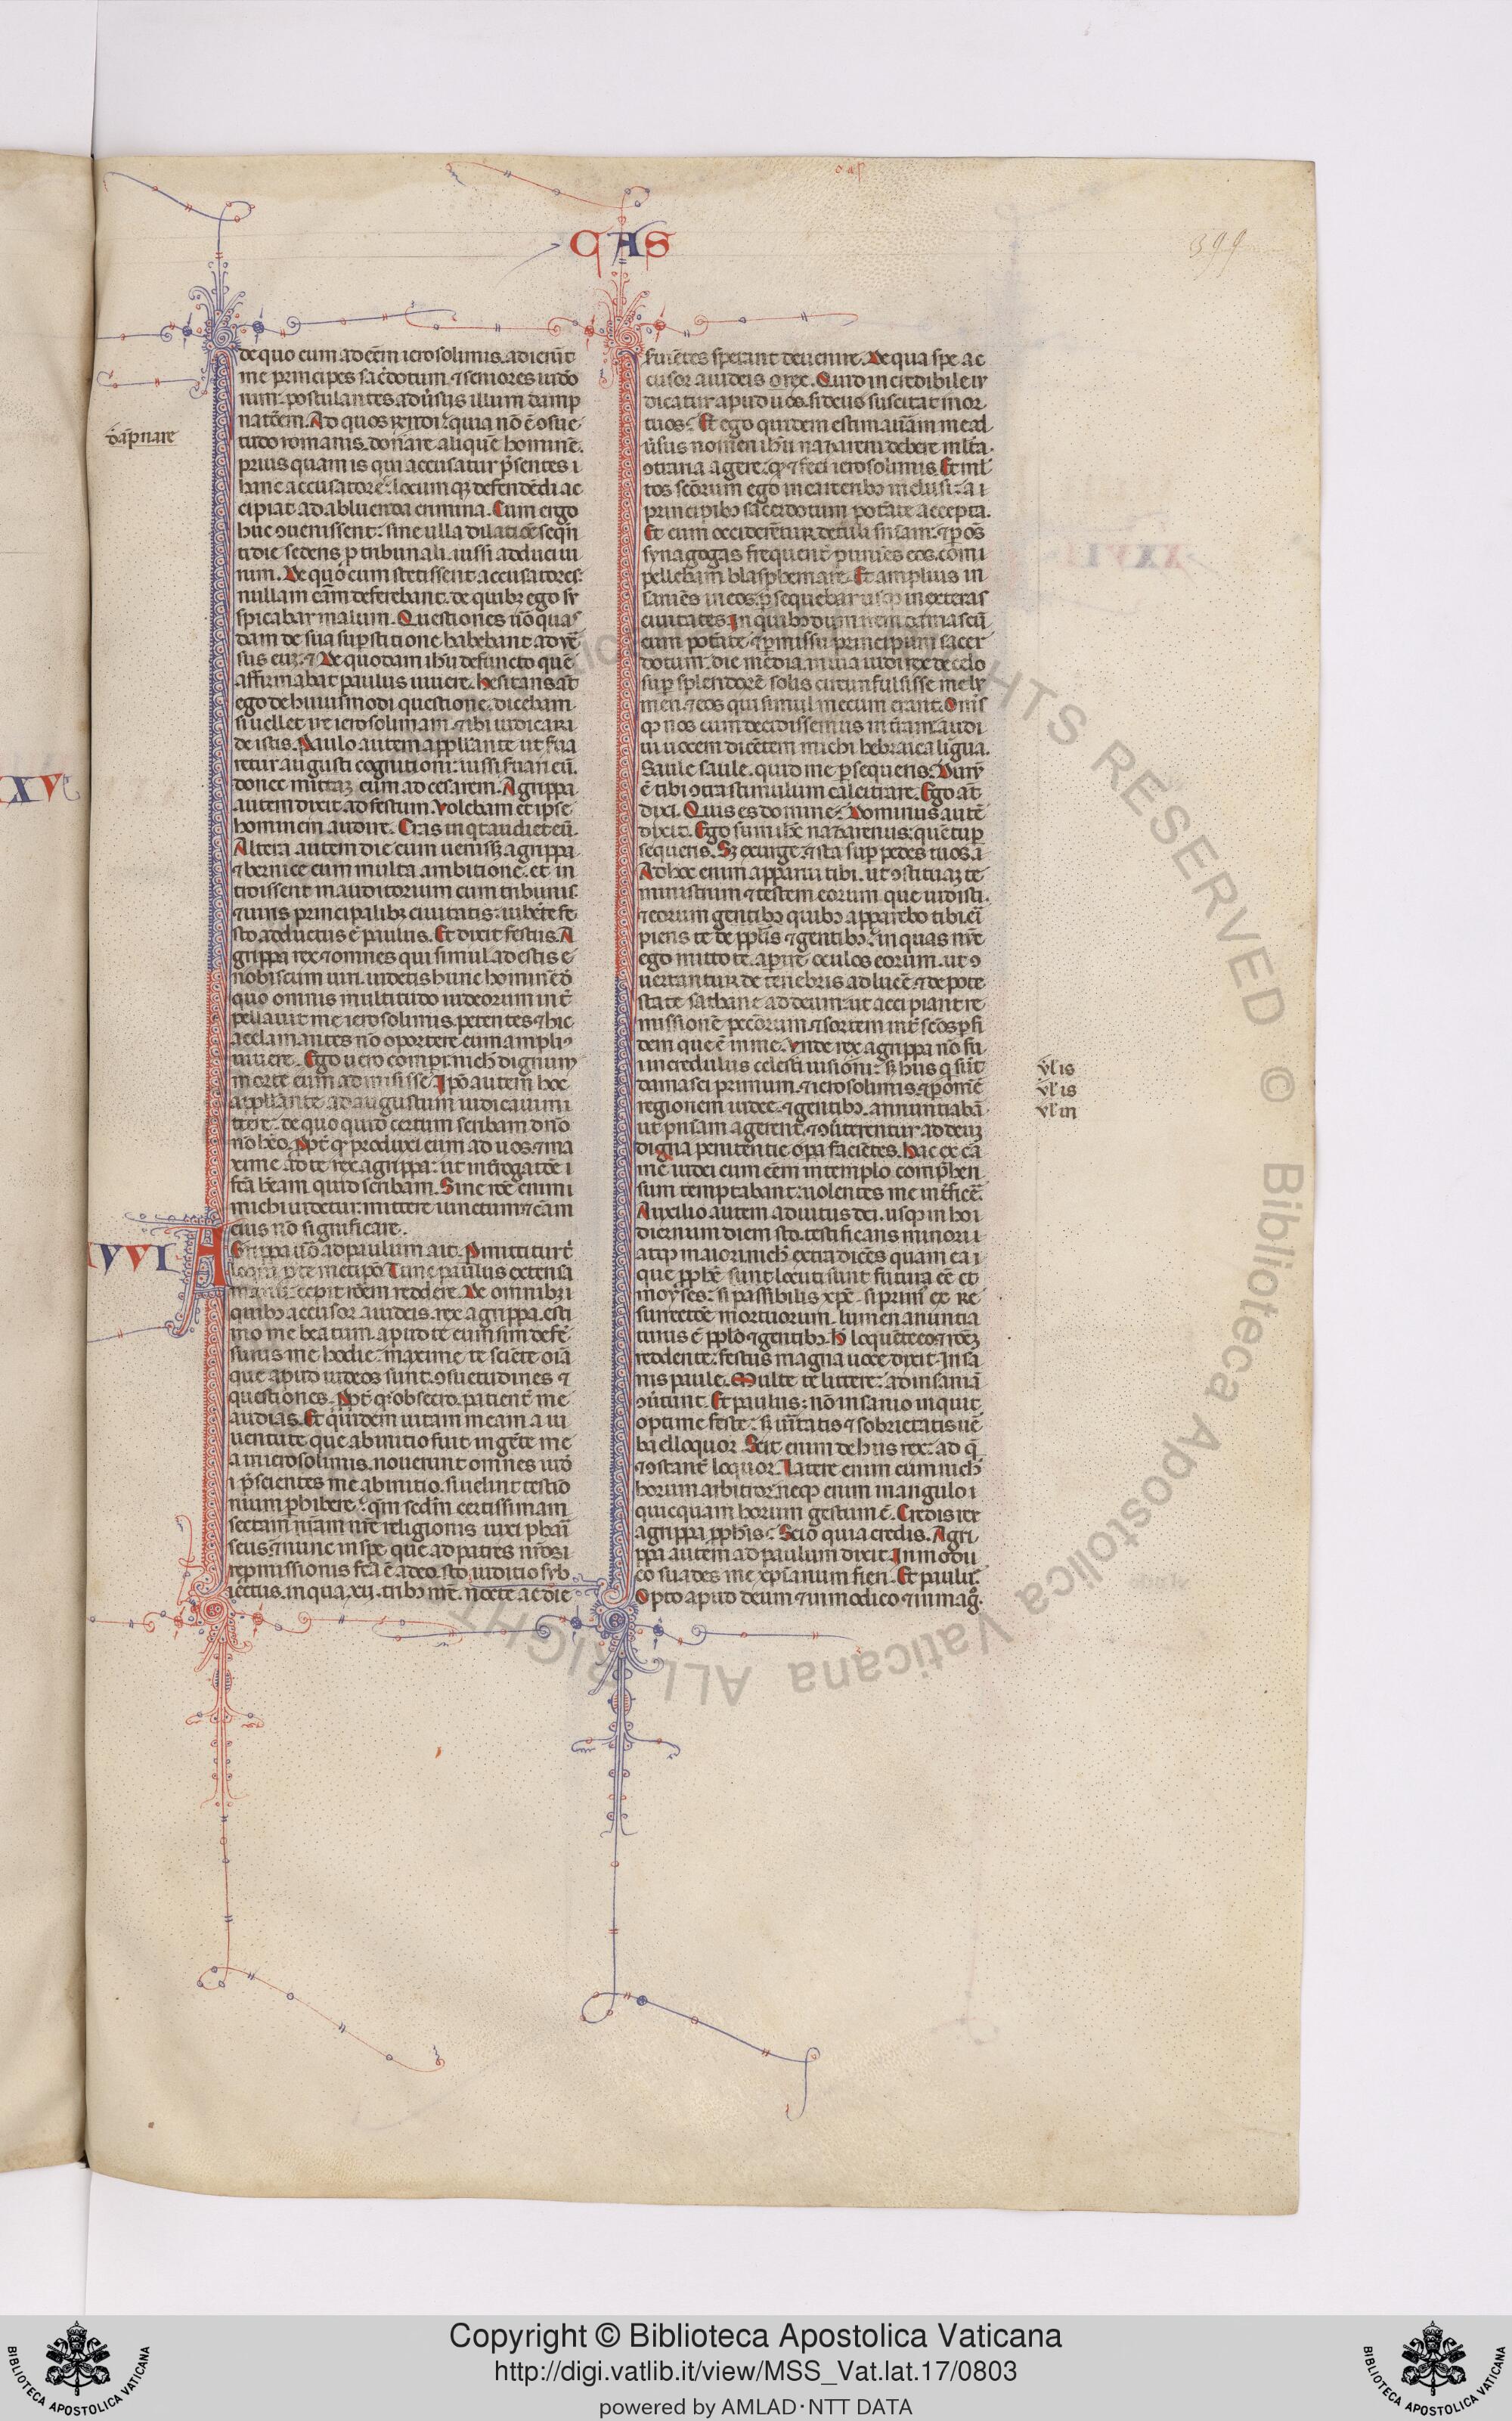 CAS
399
de quo cum ad cēm ierosolimis. adierūt
me principes sac̄dotum ⁊ seniores iudō
rum: postulantes aduīsus illum damp
natōem. Ad quos rn̄di: quia nō ē ꝯsue
tudo romanis donare aliquē hominē.
prius quam is qui accusatur p̄sentes
banc accusatorē: locum qꝫ defendēdi ac
cipiat ad abluenda crimina. Cum ergo
huc ꝯuenissent: sine ulla dilatiōe seqn̄
ti die sedens ꝓ tribunali. iussi adduci ui
rum. De quo cum stetissent accusatores:
nullam cām deferebant. de quibꝫ ego sy
spicabar malum. Questiones uō quas
dam de sua suꝑstitione habebant aduē
sus eum ⁊ De quodam ihū defuncto quē
affirmabat paulus uiuere. Hesitans āt
ego de huiusmodi questione. dicebam
si uellet ire ierosolimam ⁊ ibi iudicari
de istis. Paulo autem appllante ut ſua
retur augusti cognitioni: iussi ſuari eū.
donec mittaꝫ eum ad cesarem. Agrippa
autem dixit ad festum. Volebam et ipse
hominem audire. Cras inqt audiet eū.
Altera autem die cum uenisꝫ agrippa
⁊ bernice cum multa ambitione. et in
troissent in auditorium cum tribunis
⁊ uiris principalibꝫ ciuitatis: iubēte fe
sto adductus ē paulus. Et dixit festus. A
grippa rex ⁊ omnes qui simul adestis
nobiscum uiri. uidetis hunc hominē d̄
quo omnis multitudo iudeorum int̄
pellauit me ierosolimis. petentes ⁊ hic
acclamantes nō oportere eum ampliꝰ
uiuere. Ego uero comperi nich̄ dignum
morte eum admisisse. Ipō autem hoc
appllante ad augustum iudicaui mi
ttere. de quo quid certum scribam dn̄o
nō hēo. Ppt̄ qḋ produxi eum ad uos. ⁊ ma
xime ad te rex agrippa: ut int̄rogatōe
fcā hēam quid scribam. Sine rōe enim
michi uidetur: mittere uinctum ⁊ cām
eius nō significare.
AVVI
Agrippa uō ad paulum ait. Pmittitur t̄
loqui ꝓ te metipō. Tunc paulus extensa
manu: cepit rōem reddere. De omnibꝫ
quibꝫ accusor a iudeis. rex agrippa. esti
mo me beatum. apud te cum sim defē
surus me hodie: maxime te sciēte oīa
que apud iudeos sunt. ꝯsuetudines ⁊
questiones. Ppt̄ qḋ obsecro. patient̄ me
audias. Et quidem uitam meam a iu
uentute que ab initio fuit in gēte me
a in ierosolimis. nouerunt omnes iudi
p̄scientes me ab initio. si uelint testio
nium ꝑhibere: qm̄ sedm̄ certissimam
sectam nr̄am nr̄e religionis. uixi phari
seus ⁊ nunc in spe que ad patres nr̄os
repmissionis fcā ē a deo. sto iuditio syb
iectus. in qua xii. tribꝫ nr̄e. nocte ac die
ſuiētes sperant deuenire. De qua spe ac
cusor a iudeis o rex. Quid incredibile iv
dicatur apud uos. si deus suscitat mor
tuos? Et ego quidem estimauām me ad
uīsus nomen ihū nazareni debere mlta
ꝯtraria agere. qḋ ⁊ feci ierosolimis. Et ml
tos scōrum ego in carceribꝫ inclusi: a
principibꝫ sacerdotum potāte accepta.
Et cum occiderētur detuli sn̄iam: ⁊ ꝑ oēs
synagogas frequent̄ puniēs eos. com
pellebam blasphemare. Et amplius in
saniēs in eos ꝑsequebar usqꝫ in exteras
ciuitates. In quibꝫ dum irem damascū
cum potāte ⁊ ꝑmissu principum sacer
dotum: die media in uia uidi rex de celo
suꝑ splendorē solis circumfulsisse me ly
men ⁊ eos qui simul mecum erant. Om̄s
qꝫ nos cum decidissemus in t̄ram: audi
ui uocem dicētem michi hebraica ligua.
Saule saule. quid me ꝑsequeris? Durū
ē tibi ꝯtra stimulum calcitrare. Ego at
dixi. Quis es domine? Dominus autē
dixit. Ego sum ihc̄ nazarenus: quē tu ꝑ
sequeris. Sꝫ exurge: ⁊ sta suꝑ pedes tuos.
Ad hoc enim apparui tibi. ut ꝯstituaꝫ te
ministrum ⁊ testem eorum que uidisti.
⁊ eorum gentibꝫ quibꝫ apparebo tibi eri
piens te de pplīs ⁊ gentibꝫ: in quas nūc
ego mitto te. aꝑire oculos eorum. ut ꝯ
uertantur de tenebris ad lucē ⁊ de pote
state sathane ad deum: ut accipiant re
missionē pecc̄orum. ⁊ sortem int̄ scōs ꝑ fi
dem que ē in me. Vnde rex agrippa nō fu
i incredulus celesti uisioni: sꝫ hiis q sūt
damasci primum ⁊ ierosolimis. ⁊ ꝑ omē
regionem iudee ⁊ gentibꝫ. annuntiabā.
ut pn̄iam agerent ⁊ ꝯūterentur ad deuꝫ
digna penitentie oꝑa faciētes. Hac ex cā
me iudei cum cēm in templo compʰen
sum temptabant: uolentes me int̄ficē.
Auxilio autem adiutus dei. usqꝫ in ho
diernum diem sto. testificans minori
atqꝫ maiori. nich̄ extra dicēs quam ea
que ppħe sunt locuti sunt futura eē et
moyses: si passibilis xp̄c. si prim̄ ex re
surrectōe mortuorum. lumen anuntia
turus ē pplō ⁊ gentibꝫ. H̄ loquēte eo ⁊ rōeꝫ
reddente: festus magna uoce dixit. Insa
nis paule. Multe te littere: ad insaniā
ꝯūtunt. Et paulus: nō insanio inquit
optime feste: sꝫ ūitatis ⁊ sobrietatis uē
ba elloquor. Scit enim de hiis rex: ad q̄
⁊ ꝯstant̄ loquor. Latere enim eum nich̄
horum arbitror. neqꝫ enim in angulo
quicquam horum gestum ē. Credis rex
agrippa ppħis? Scio quia credis. Agri
ppa autem ad paulum dixit. In modi
co suades me xp̄ianum fieri. Et paulꝰ.
Opto apud deum ⁊ in modico ⁊ in mag̊.
dāpnare
XXV
ul̄ is
ul̄ is
ul̄ in
Copyright © Biblioteca Apostolica Vaticana
http://digi.vatlib.it/view/MSS_Vat.lat.17/0803
powered by AMLAD·NTT DATA
BIBLIOTECA APOSTOLICA VATICANA
BIBLIOTECA APOSTOLICA VATICANA